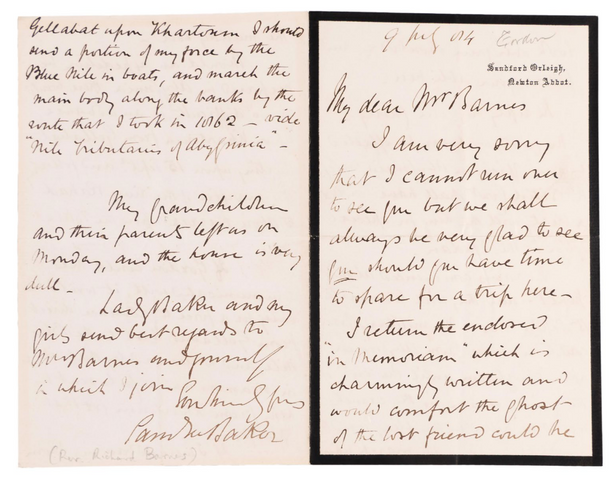 9 July 84 Gordon
Sandford Orleigh,
Newton Abbot.
My dear Mr Barnes
I am very sorry
that I cannot run over
to see you but we shall
always be very glad to see
you should you have time
to spare for a trip here –
I return the enclosed
"in Memoriam" which is
charmingly written and
would comfort the ghost
of the lost friend could he
Gellabat upon Khartoum I should
send a portion of my force by the
Blue Nile in boats, and march the
main body along the banks by the
route that I took in 1862 – vide
"Nile Tributaries of Abyssinia" –
My grandchildren
and their parents left us on
Monday, and the house is very
dull –
Lady Baker and my
girls send best regards to
Mrs Barnes and yourself
in which I join
Saml W Baker
(Rev. Richard Barnes)